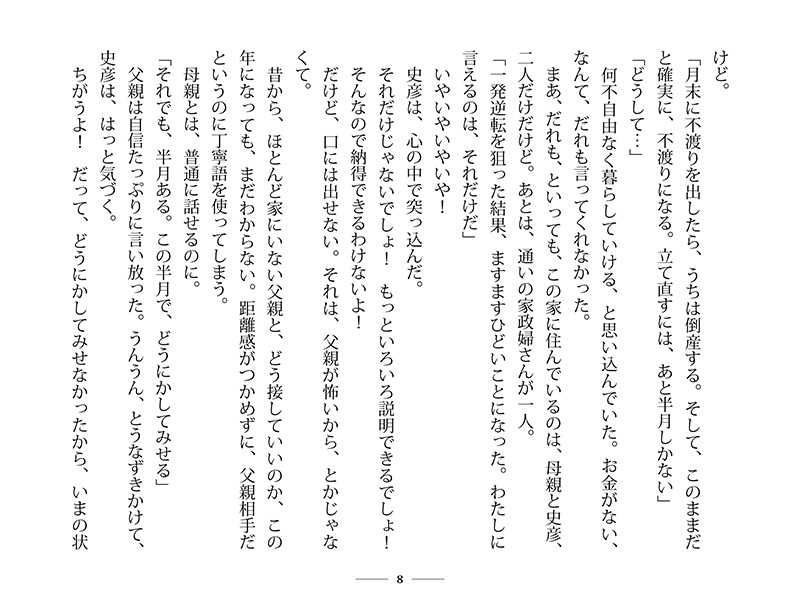 けど。
「月末に不渡りを出したら、うちは倒産する。そして、このままだ
と確実に、不渡りになる。立て直すには、あと半月しかない」
「どうして…」
何不自由なく暮らしていける、と思い込んでいた。お金がない、
なんて、だれも言ってくれなかった。
まあ、だれも、といっても、この家に住んでいるのは、母親と史彦、
二人だけだけど。あとは、通いの家政婦さんが一人。
「一発逆転を狙った結果、ますますひどいことになった。わたしに
言えるのは、それだけだ」
いやいやいやいや！
史彦は、心の中で突っ込んだ。
それだけじゃないでしょ！　もっといろいろ説明できるでしょ！
そんなので納得できるわけないよ！
だけど、口には出せない。それは、父親が怖いから、とかじゃな
くて。
昔から、ほとんど家にいない父親と、どう接していいのか、この
年になっても、まだわからない。距離感がつかめずに、父親相手だ
というのに丁寧語を使ってしまう。
母親とは、普通に話せるのに。
「それでも、半月ある。この半月で、どうにかしてみせる」
父親は自信たっぷりに言い放った。うんうん、とうなずきかけて、
史彦は、はっと気づく。
ちがうよ！　だって、どうにかしてみせなかったから、いまの状
8